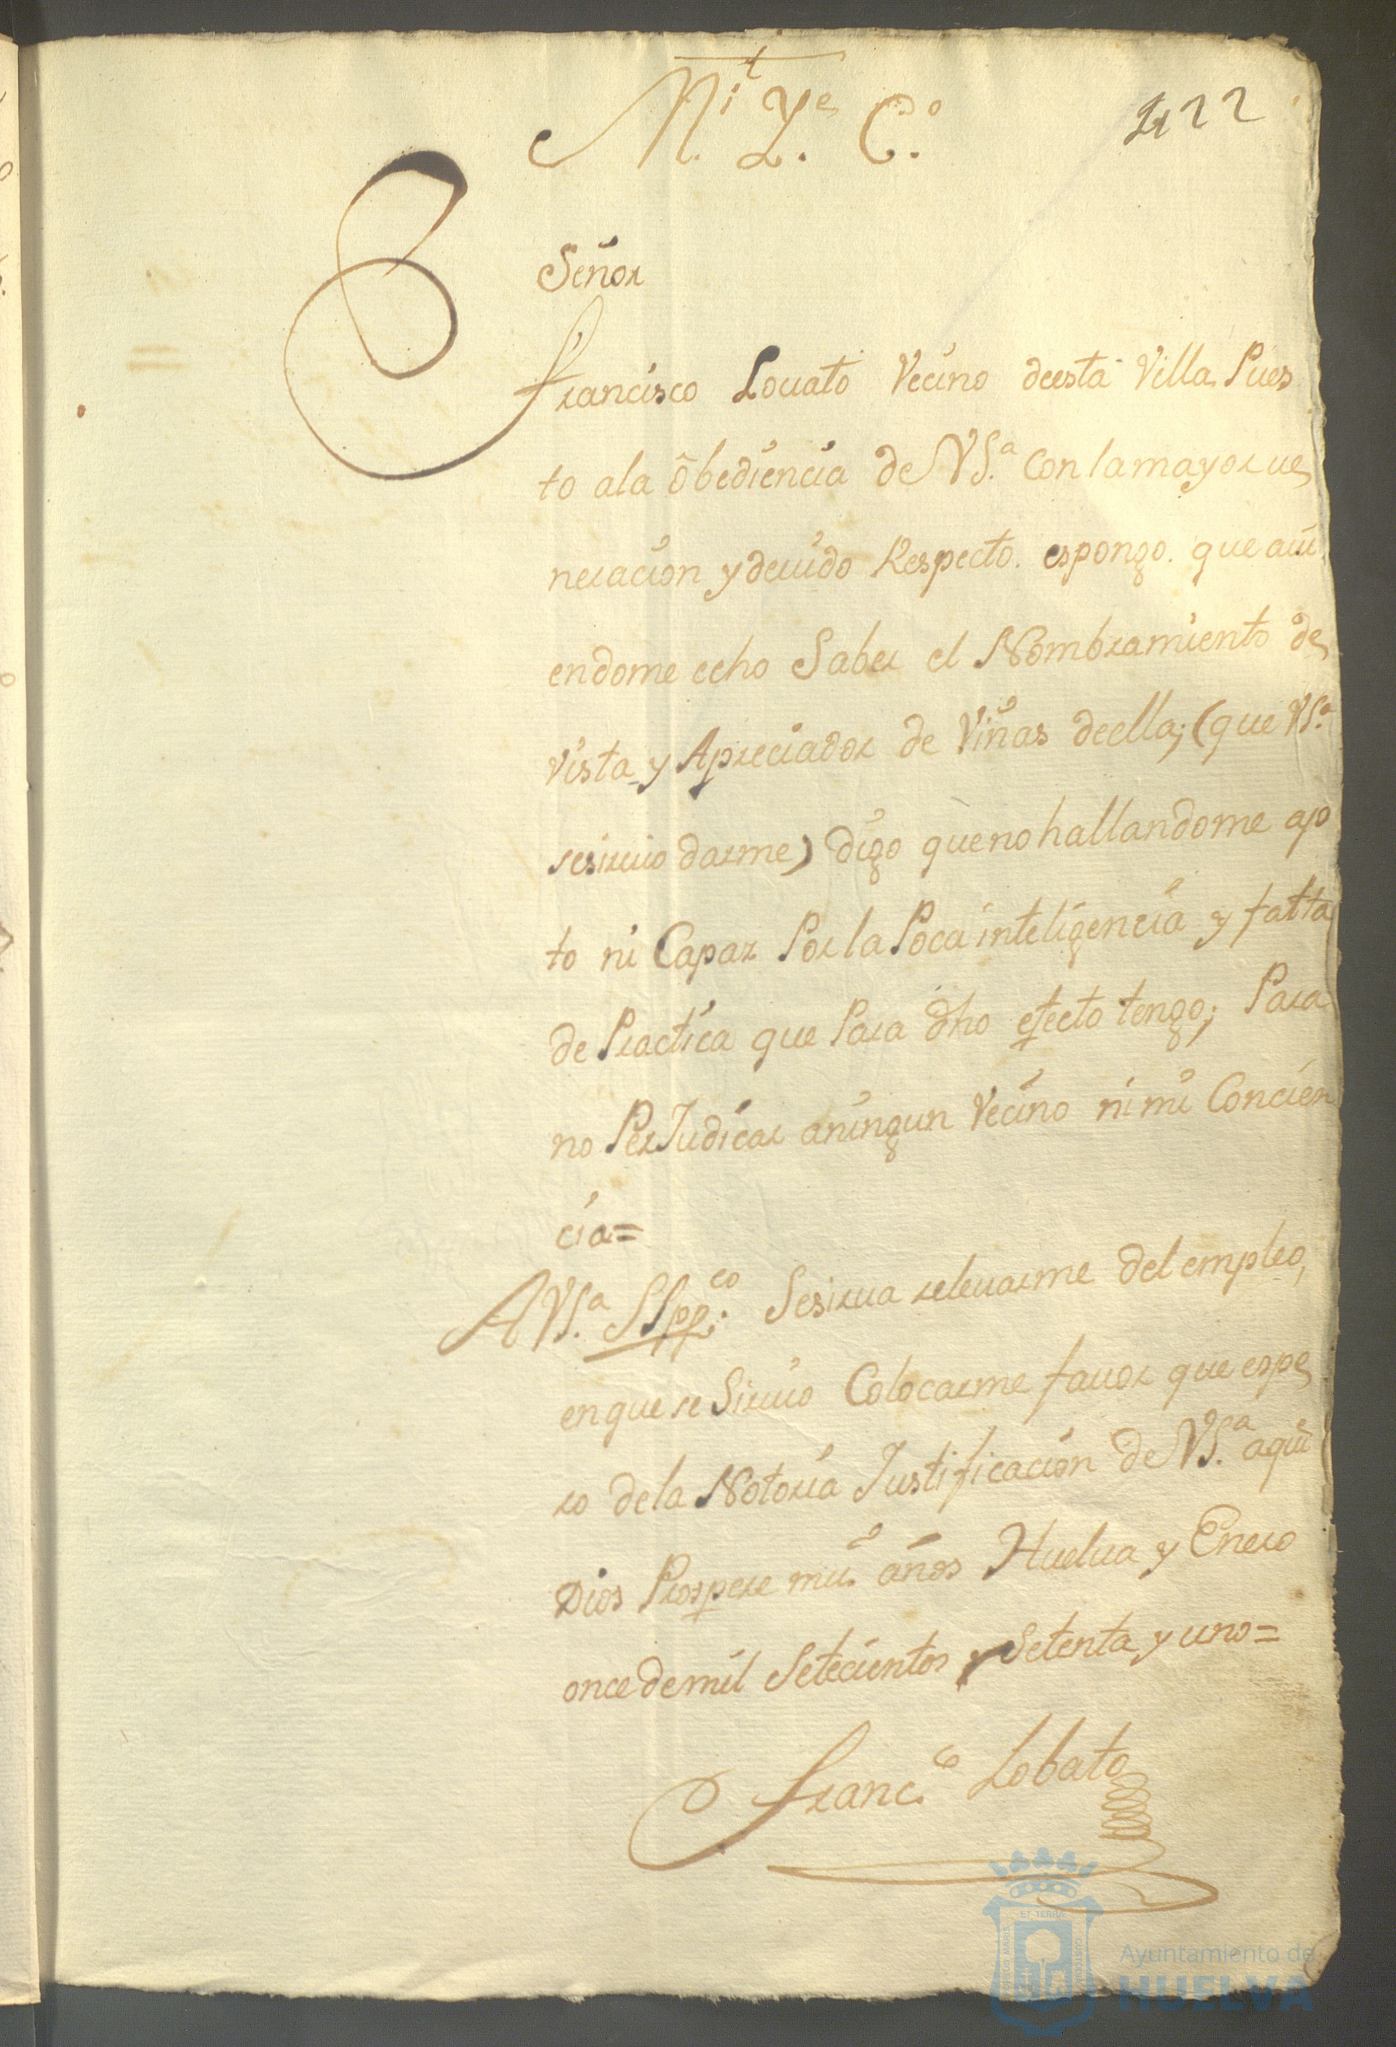 Mi^t Y^e C^o
422
Señor
Francisco Lovato Vecino deesta Villa Pues
to ala Obediencia de VS.^a Con la mayor ve
neracion y devido Respecto. espongo. que avi
endome echo Saber el Nombramiento de
Vista y Apreciador de Viñas deella; (que VS.^a
sesirvio darme) digo que no hallandome ap
to ni Capaz Por la Poca inteligencia y falta
de Practica que Para dho efecto tengo; Para
no PerJudicar aningun Vecino ni mi Concien
cia=
A VS.^a SSpp.^co Sesirva relevarme del empleo,
enque se Sirvio Colocarme favor que espe
ro dela Notoria Justificacion de VS.^a aqn
Dios Prospere mu.^s años Huelva y Enero
once demil Setecientos y Setenta y uno=
Franc.^co Lobato
Ayuntamiento de
HUELVA